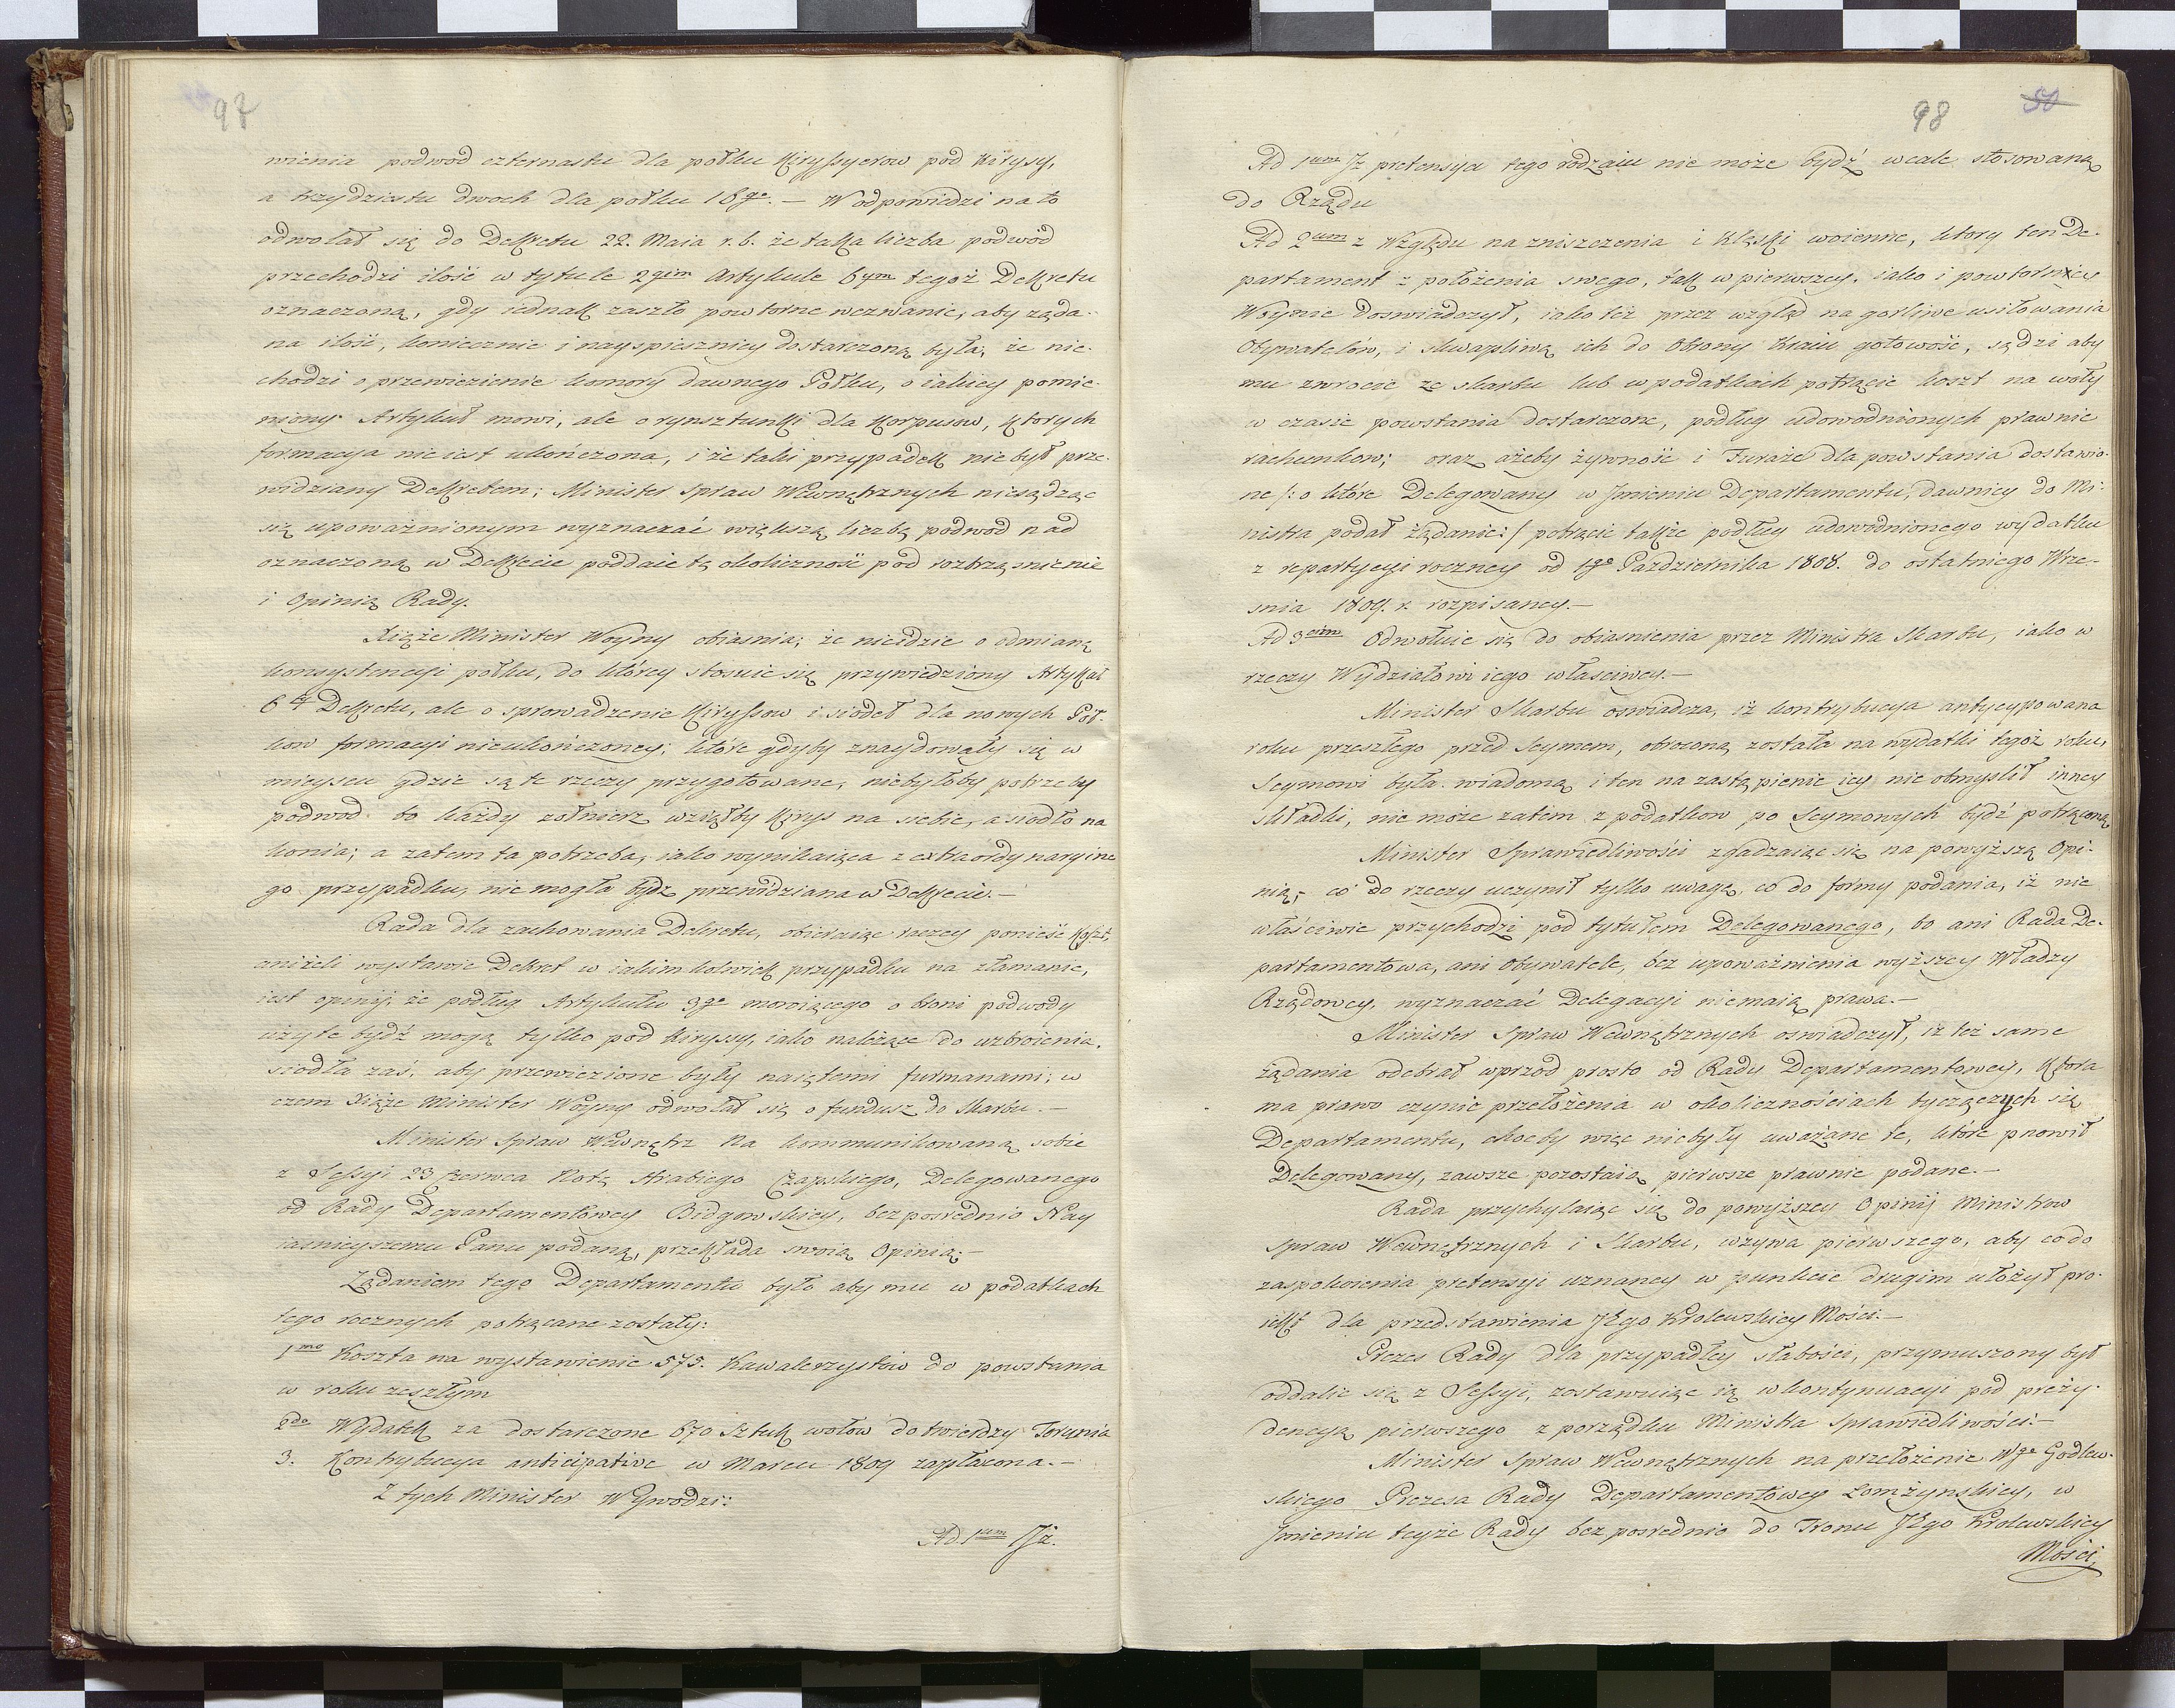 97
wienia podwod czternastu dla połku Kiryssyerow pod Kirysy,
a trzydziestu dwoch dla połku 18go. – W odpowiedzi na to
odwołał się do Dekretu 22. Maia r. b. że taka liczba podwod
przechodzi ilość w tytule 2gim Artykule 6ym tegoż Dekretu
oznaczoną, gdy iednak zaszło powtorne wezwanie, aby żąda-
na ilość, koniecznie i nayspieszniey dostarczoną była, że nie-
chodzi o przewiezienie komory dawnego Połku, o iakiey pomie-
niony Artykuł mowi, ale o rynsztunki dla Korpusow, ktorych
formacya nie iest ukończona, i że taki przypadek nie był prze-
widziany Dekretem; Minister Spraw Wewnętrznych niesądząc
się upoważnionym wyznaczać większą liczbę podwod nad
oznaczoną w Dekrecie poddaie tę okoliczność pod roztrząsnienie
i Opinię Rady.
Xiąże Minister Woyny obiasnia; że nieidzie o odmianę
konsystencyi połku, do ktorey stosuie się przywiedziony Artykuł
6ty Dekretu, ale o sprowadzenie Kiryssow i siodeł dla nowych Poł-
kow formacyi nieukończoney; które gdyby znaydowały się w
mieyscu gdzie są te rzeczy przygotowane, niebyłoby potrzeby
podwod. bo każdy zołnierz wziąłby Kirys na siebie, a siodło na
konia; a zatem ta potrzeba, iako wynikaiąca z extraordynaryine
go przypadku, nie mogła bydź przewidziana w Dekrecie. –
Rada dla zachowania Dekretu, obieraiąc raczey ponieść koszt,
aniżeli wystawić Dekret w iakimkolwiek przypadku na złamanie,
iest opinij, że podług Artykułu 3go mowiącego o broni podwody
użyte bydź mogą tylko pod Kiryssy, iako należące do uzbroienia,
siodła zaś, aby przewiezione były naiętemi furmanami; w
czem Xiąże Minister Woyny odwołał się o fundusz do Skarbu. –
Minister Spraw Wewnętrz Na kommunikowaną sobie
z Sessyi 23 Czerwca Notę Hrabiego Czapskiego, Delegowanego
od Rady Departamentowey Bidgowskiey, bezposrednio Nay
iasnieyszemu Panu podaną, przekłada swoią Opinią: –
Żądaniem tego Departamentu było aby mu w podatkach
tego rocznych potrącane zostały:
1mo Koszta na wystawienie 575. Kawalerzystów do powstania
w roku zeszłym
2do Wydatek za dostarczone 670 Sztuk wołów do twierdzy Torunia
3. Kontrybucya anticipative w Marcu 1809 zapłacona. –
Z tych Minister Wywodzi:
Ad 1um Iż.
98 50
Ad 1um Iż pretensya tego rodzaiu nie może bydź wcale stosowaną
do Rządu
Ad 2um z Względu na zniszczenia i klęski woienne, ktory ten De-
partament z położenia swego, tak w pierwszey, iako i powtorney
Woynie doswiadczył, iako też przez wzgląd na gorliwe usiłowania
Obywatelów, i skwapliwą ich do Obrony Kraiu gotowość, sądzi aby
mu zwrocić ze skarbu lub w podatkach potrącić koszt na woły
w czasie powstania dostarczone, podług udowodnionych prawnie
rachunkow; oraz ażeby żywność i Furaże dla powstania dostawio-
ne /: o które Delegowany w Imieniu Departamentu, dawniey do Mi-
nistra podał żądanie :/ potrącić także podług udowodnionego wydatku
z repartycyi roczney od 1go Pazdziernika 1808. do ostatniego Wrze-
snia 1809. r. rozpisaney. –
Ad 3um Odwołuie się do obiasnienia przez Ministra Skarbu, iako w
rzeczy Wydziałowi iego własciwey. –
Minister Skarbu oswiadcza, iż kontrybucya antycypowana
roku przeszłego przed Seymem, obrocona została na wydatki tegoż roku,
Seymowi była wiadomą, i ten na zastąpienie iey nie obmyslił inney
składki, nie może zatem z podatkow po Seymowych bydź potrąconą
Minister Sprawiedliwości zgadzaiąc się na powyższą Opi-
nią, – co do rzeczy uczynił tylko uwagę, co do formy podania, iż nie
właściwie przychodzi pod tytułem Delegowanego, bo ani Rada De-
partamentowa, ani Obywatele, bez upoważnienia wyższey Władzy
Rządowey, wyznaczać Delegacyi niemaią prawa. –
Minister Spraw Wewnętrznych oswiadczył, iż też same
żądania odebrał wprzod prosto od Rady Departamentowey, ktora
ma prawo czynić przełożenia w okolicznościach tyczących się
Departamentu, choćby więc niebyły uważane te, które pnowił
Delegowany, zawsze pozostaią pierwsze prawnie podane. –
Rada przychylaiąc się do powyższey Opinij Ministrow
Spraw Wewnętrznych i Skarbu, wzywa pierwszego, aby co do
zaspokoienia pretensyi uznaney w punkcie drugim ułożył pro-
iekt dla przedstawienia JKgo Krolewskiey Mości. –
Prezes Rady dla przypadłey słabości, przymuszony był
oddalić się z Sessyi, zostawuiąc ią w kontynuacyi pod prezy-
dencyą pierwszego z porządku Ministra Sprawiedliwości. –
Minister Spraw Wewnętrznych na przełożenie Wgo Godlew-
skiego Prezesa Rady Departamentowey Łomżynskiey, w
Imieniu teyże Rady bezposrednio do Tronu JKgo Krolewskiey
Mości,